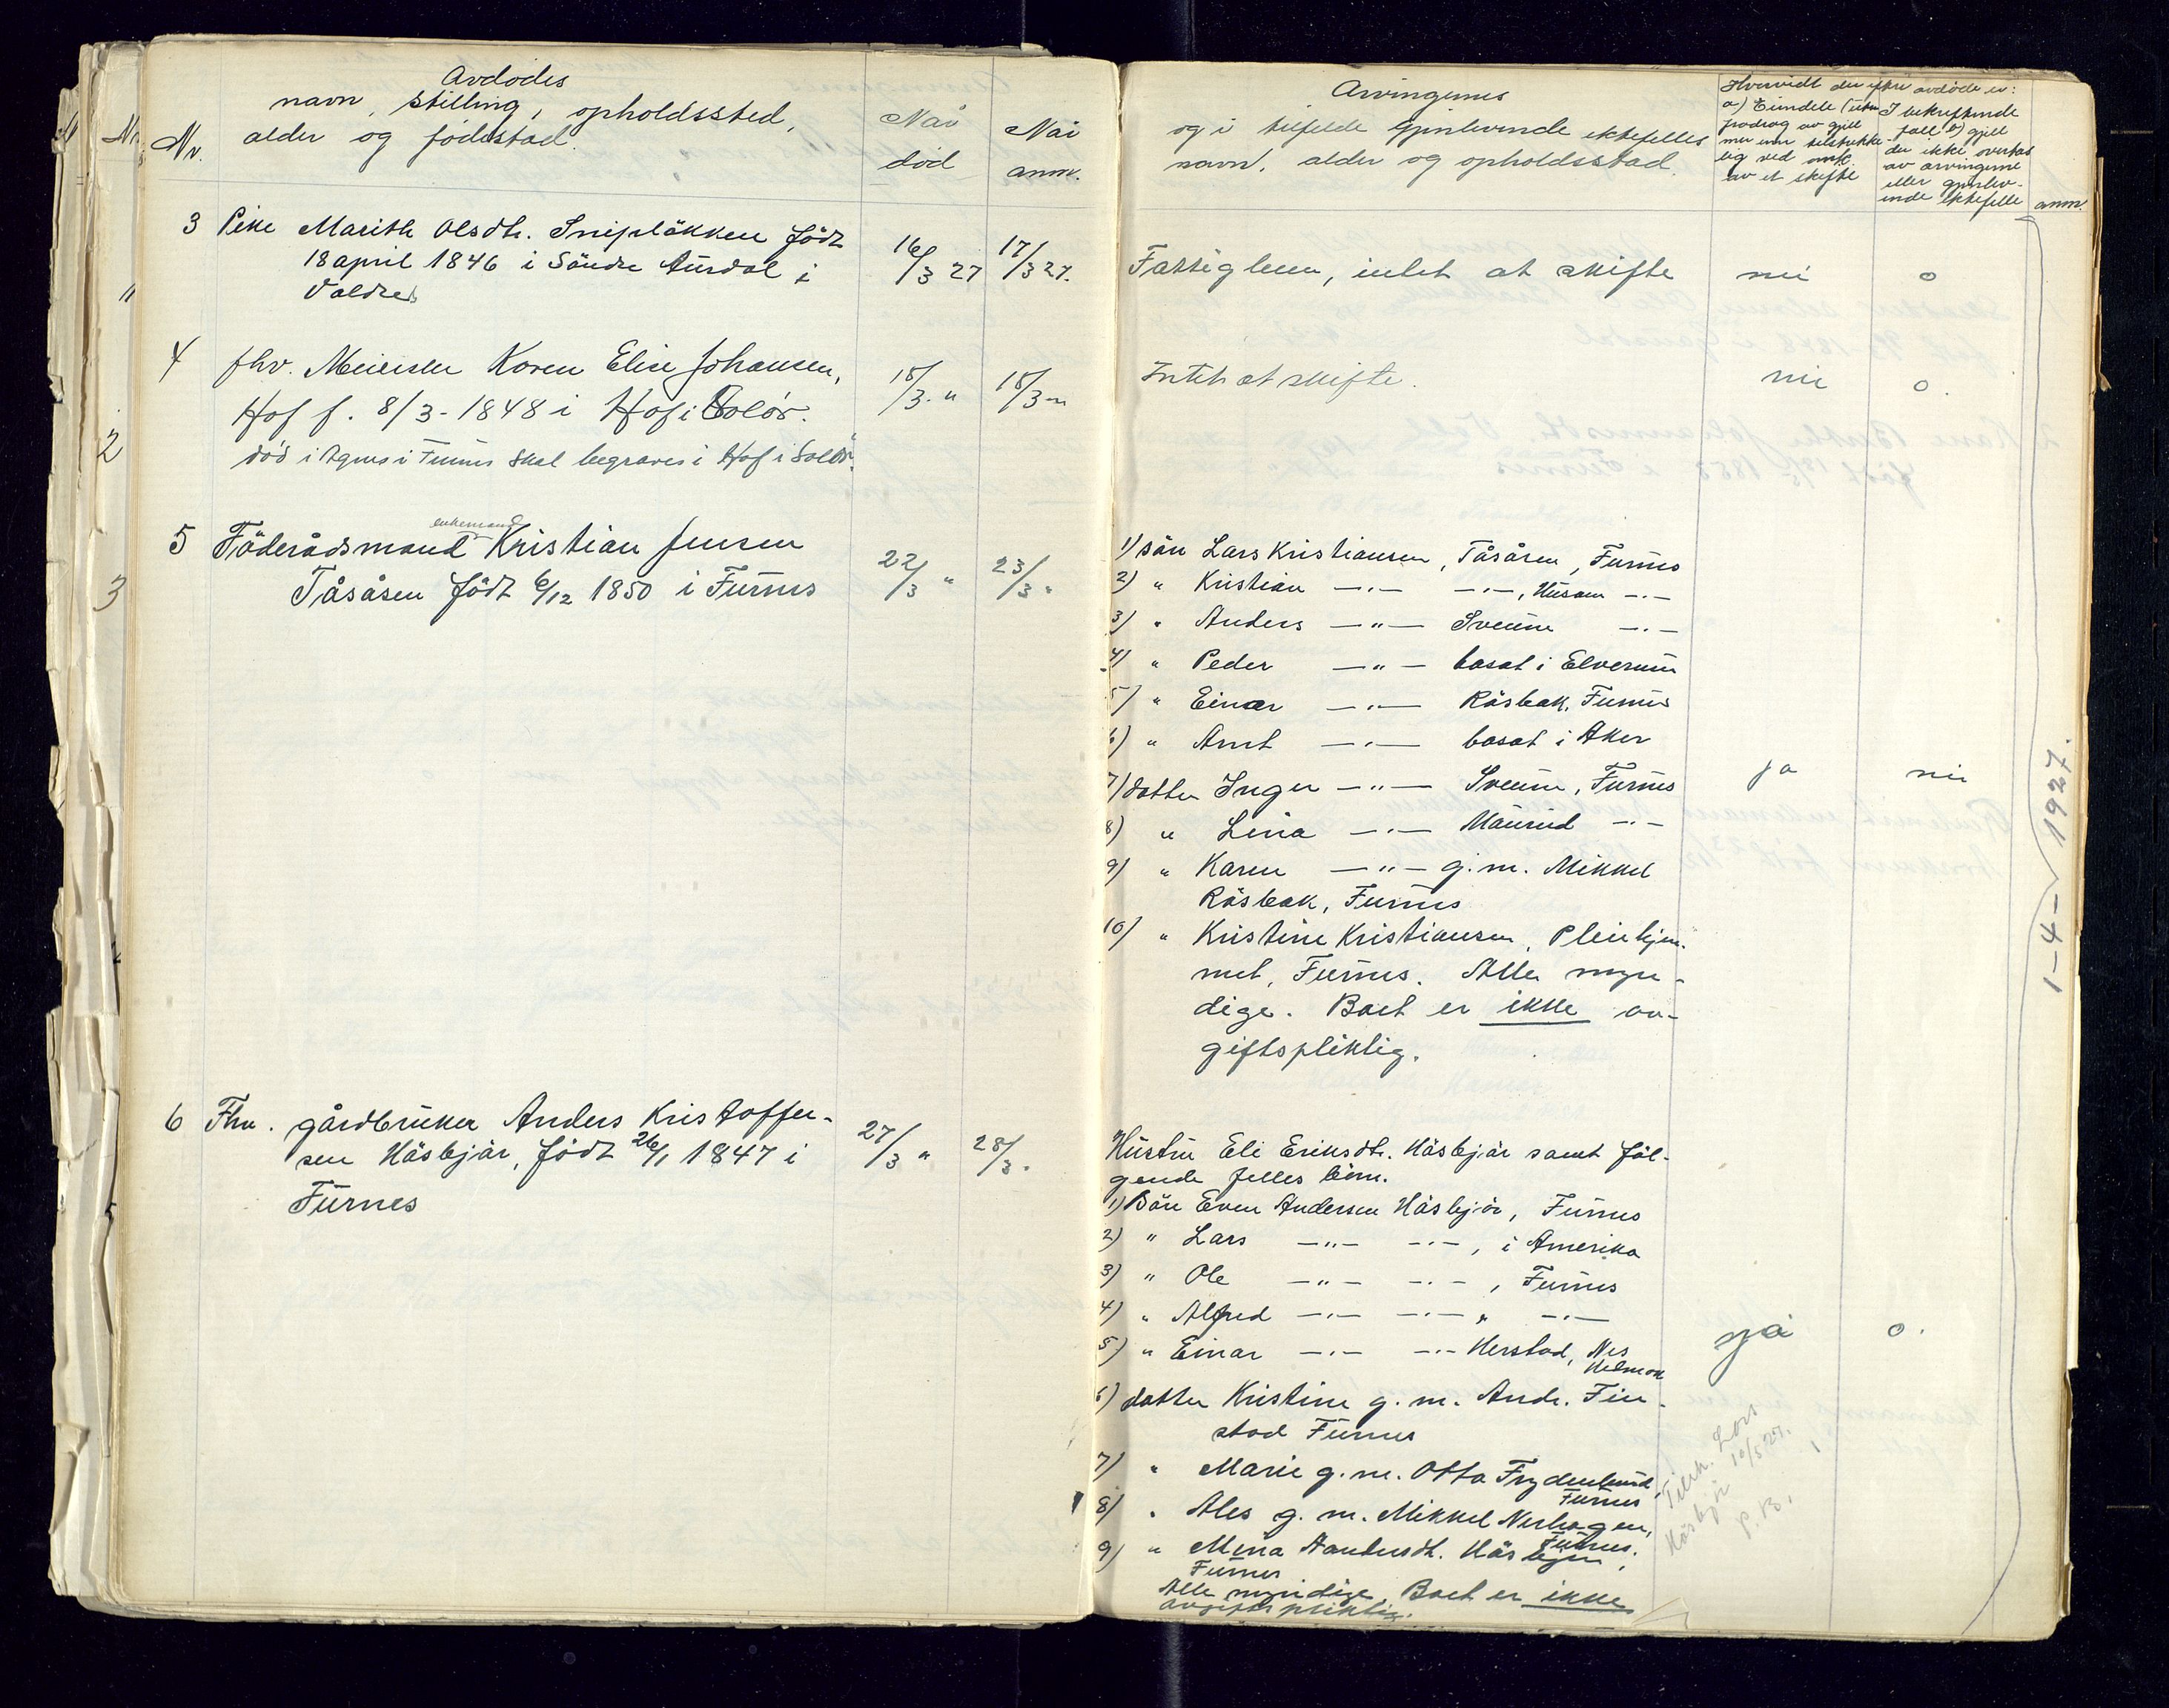 Avdødes
navn, stilling, opholdssted,
alder og fødested.
Nr.
Når
død
Når
anm.
3 Pike Marith Olsdtr. Snipløkken født
18 april 1846 i Søndre Aurdal i
Valdres
16/3 27 17/3 27.
4 fhv. Meierske Karen Elise Johansen,
Hof f. 8/3-1848 i Hof i Solør.
død i Agnes i Furnes skal begraves i Hof i Solør.
18/3 " 18/3 "
5 Föderådsmand enkemand Kristian Jensen
Tåsåsen født 6/12 1850 i Furnes
22/3 " 23/3 "
6 Fhv. gårdbruker Anders Kristoffer-
sen Häsbjör, født 26/1 1847 i
Furnes
27/3 " 28/3 "
Arvingernes
og i tilfelde gjenlevende ektefelles
navn, alder og opholdsstad.
Hvorvidt der efter avdöde er:
a) Eiendele (uten
fradrag av gjell
mer enn tilstrekke-
lig ved omk.
av et skifte
I bekreftende
fall b) gjell
der ikke overtas
av arvingerne
eller gjenlev-
ende ektefelle
anm.
Fattiglem, intet at skifte nei 0
Intet at skifte. nei 0.
1) sön Lars Kristiansen, Tåsåsen, Furnes
2) " Kristian —"— —"—, Husam —"—
3) " Anders —"— Sveum —"—
4) " Peder —"— bosat i Elverum
5) " Einar —"— Råsbak, Furnes
6) " Arnt —"— bosat i Aker
7) datter Inger —"— Sveum, Furnes
ja nei
8) " Lina —"— Maurud —"—
9) " Karen —"— g.m. Mikkel
Råsbak, Furnes
10) " Kristine Kristiansen, Pleiehjem-
met, Furnes. Alle myn-
dige. Boet er ikke av-
giftspliktig.
Hustru Eli Eriksdtr. Häsbjör samt föl-
gende felles börn.
1) Sön Even Andersen Häsbjör, Furnes
2) " Lars —"— —"—, i Amerika
3) " Ole —"— —"—, Furnes
4) " Alfred —"— —"—, —"—
5) " Einar —"— —"— Herstad, Nes
Hedmark
ja 0.
6) datter Kristine g.m. Andr. Fin-
stad Furnes
7) " Marie g.m. Otto Frydenlund,
Furnes
8) " Ales g.m. Mikkel Nerhagen,
Furnes.
9) " Mina Andersdt. Häsbjör,
Furnes
Alle myndige. Boet er ikke
avgiftspliktig.
Lars
Häsbjör 10/5 27.
P.B.
1-4-1927.
2
3